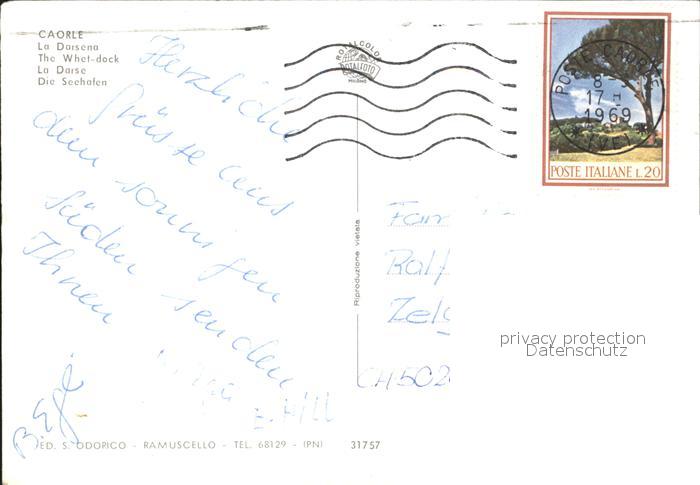 CAORLE
La Darsena
The Whet-dock
La Darse
Die Seehafen
Herzliche
Grüs te aus
dem sonnigen
Süden senden
Ihnen
E. Hill
ROTALCOLOR
ROTALFOTO
MILANO
Riproduzione vietata
POSTE CAORLE
8
17
1969
POSTE ITALIANE L. 20
Fam
Ralf
CH 502
privacy protection
Datenschutz
ED. S. ODORICO - RAMUSCELLO - TEL. 68129 - (PN) 31757